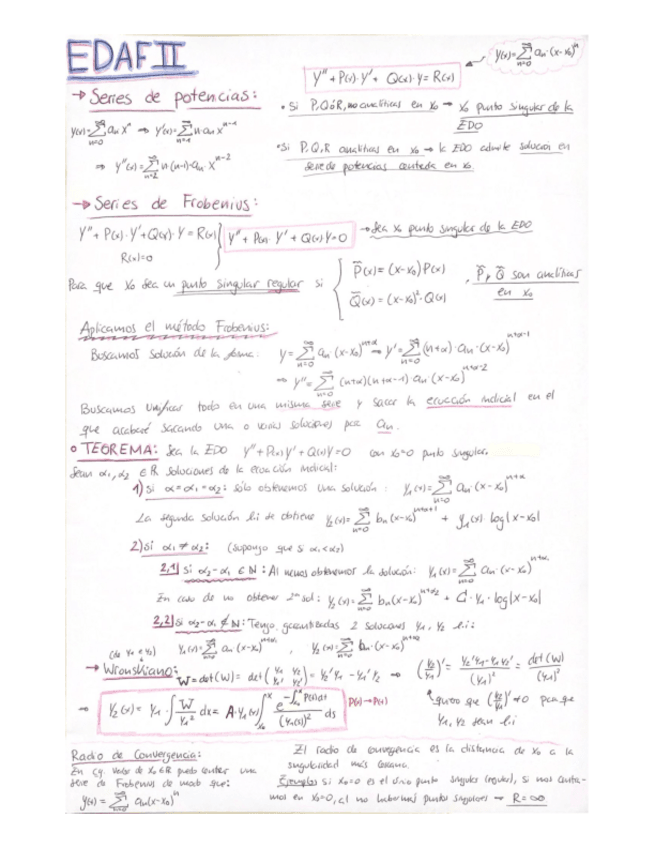 EDAF II
y(x)=∑_{n=0}^{∞} a_n·(x-x₀)^n
Y''+P(x)·Y'+Q(x)·Y=R(x)
→ Series de potencias:
y(x)=∑_{n=0}^{∞} a_n x^n ⇒ y'(x)=∑ n·a_n x^{n-1}
⇒ y''(x)=∑_{n=2}^{∞} n·(n-1)·a_n·x^{n-2}
• Si P,Q ó R, no analíticas en x₀ → x₀ punto singular de la
EDO
• Si P,Q,R analíticas en x₀ → la EDO admite solución en
serie de potencias centada en x₀.
→ Series de Frobenius:
Y''+P(x)·Y'+Q(x)·Y=R(x)
R(x)=0
Y''+P(x)·Y'+Q(x)Y=0
→ Sea x₀ punto singular de la EDO
Para que x₀ sea un punto singular regular si
P̃(x)=(x-x₀)P(x)
Q̃(x)=(x-x₀)²·Q(x)
, P̃ y Q̃ son analíticas
en x₀
Aplicamos el método Frobenius:
Buscamos solución de la forma: y=∑_{n=0}^{∞} a_n·(x-x₀)^{n+α} ⇒ y'=∑_{n=0}^{∞}(n+α)·a_n·(x-x₀)^{n+α-1}
⇒ y''=∑_{n=0}^{∞} (n+α)(n+α-1) a_n·(x-x₀)^{n+α-2}
Buscamos unificar todo en una misma serie y sacar la ecuación indicial en el
que acabaré sacando una o varias soluciones por a_n.
• TEOREMA: Sea la EDO Y''+P(x)Y'+Q(x)Y=0 con x₀=0 punto singular.
Sean α₁,α₂ ∈ ℝ soluciones de la ecuación indicial:
1) Si α=α₁=α₂: sólo obtenemos una solución: y₁(x)=∑_{n=0}^{∞} a_n·(x-x₀)^{n+α}
La segunda solución l.i se obtiene y₂(x)=∑_{n=0}^{∞} b_n(x-x₀)^{n+α+1} + y₁(x)·log|x-x₀|
2) Si α₁≠α₂: (supongo que si α₁<α₂)
2,1) Si α₂-α₁ ∈ ℕ: Al menos obtenemos la solución: y₁(x)=∑_{n=0}^{∞} a_n·(x-x₀)^{n+α₁}
En caso de no obtener 2ª sol: y₂(x)=∑_{n=0}^{∞} b_n(x-x₀)^{n+α₂} + C·y₁·log|x-x₀|
2,2) Si α₂-α₁ ∉ ℕ: Tengo garantizadas 2 soluciones y₁, y₂ l.i:
y₁(x)=∑_{n=0}^{∞} a_n·(x-x₀)^{n+α₁} , y₂(x)=∑_{n=0}^{∞} b_n·(x-x₀)^{n+α₂}
(de y₁ e y₂)
→ Wronskiano: W=det(W)=det(y₁ y₂ y₁' y₂')=y₂'y₁-y₁'y₂ ⇒ (y₂/y₁)'=(y₂'y₁-y₂y₁')/(y₁)²=det(W)/(y₁)²
⇒ y₂(x)=y₁·∫W/y₁² dx=A·y₁(x)∫_{x₀}^{x} e^{-∫P(t)dt}/(y₁(s))² ds
P(x)→P(t)
quiero que (y₂/y₁)'≠0 para que
y₁,y₂ sean l.i
Radio de Convergencia:
En cq. valor de x₀∈ℝ puedo centrar una
serie de Frobenius de modo que:
y(x)=∑_{n=0}^{∞} a_n(x-x₀)^n
El radio de convergencia es la distancia de x₀ a la
singularidad más cercana.
Ejemplo: Si x₀=0 es el único punto singular (regular), si nos centa-
mos en x₀=0, al no haber más puntos singulares → R=∞